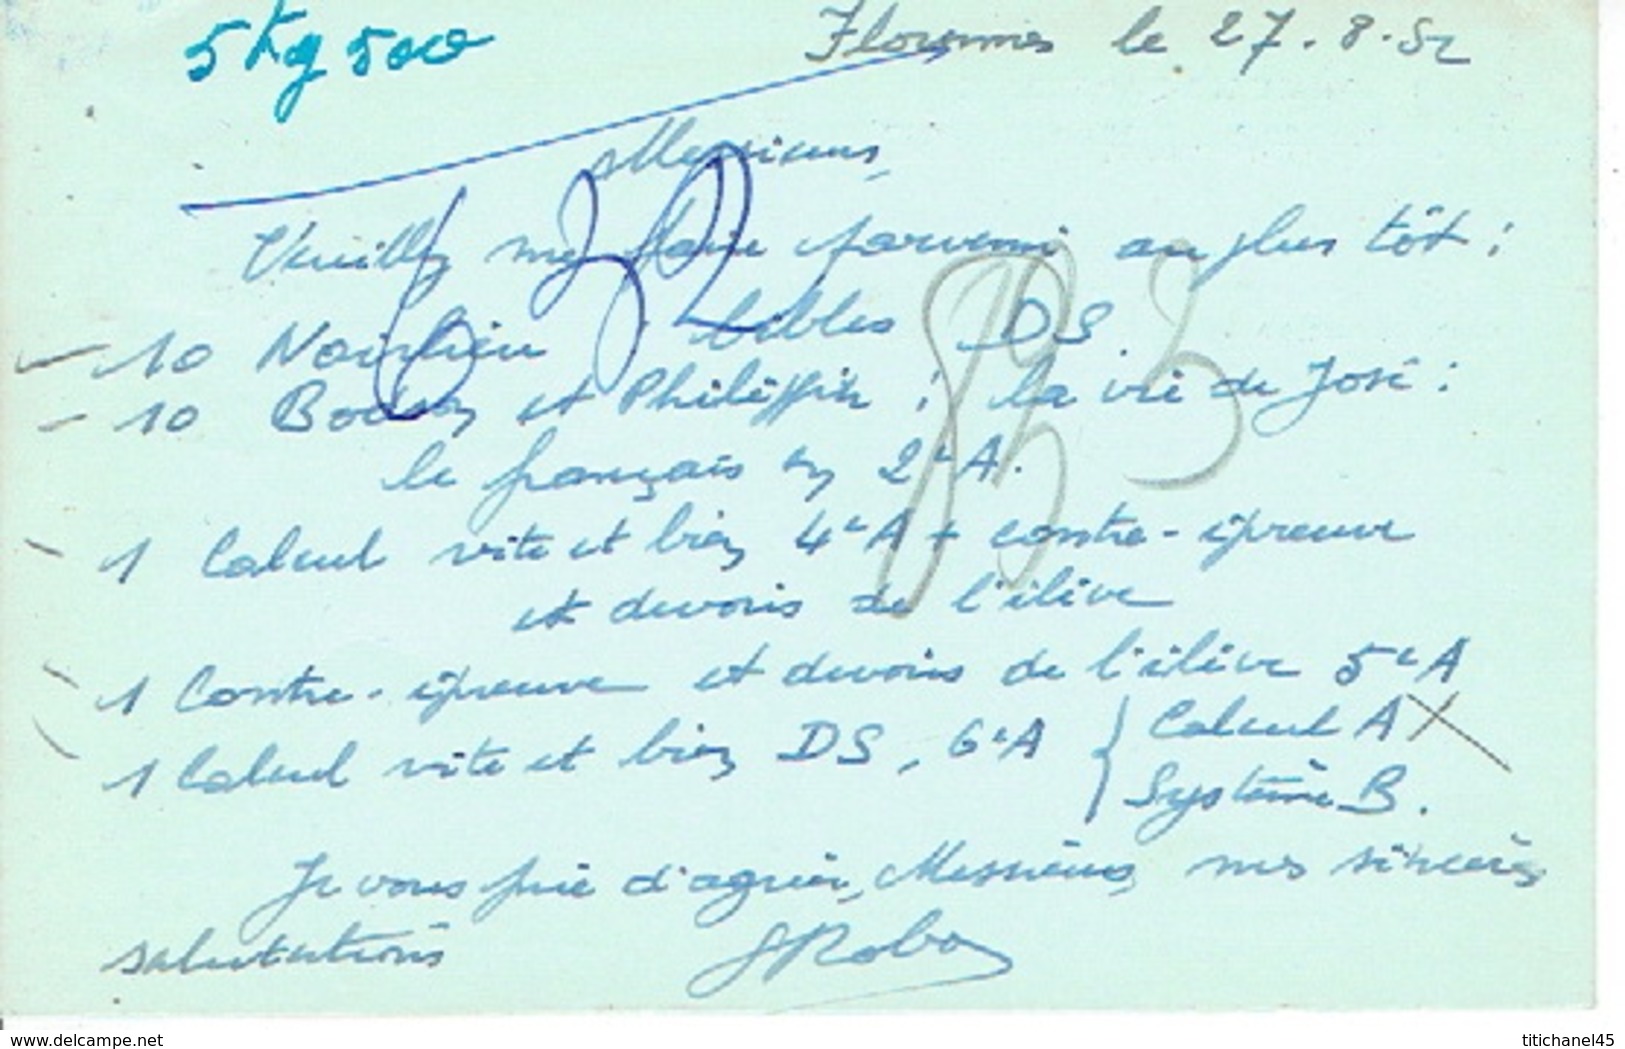 5 kg 500
Florennes le 27.8.52
Messieurs,
Veuillez me faire parvenir au plus tôt :
10 bibles DS
10 et Philippin : la vie de José :
le français en 2e A.
1 Calcul vite et bien 4e A + contre-épreuve
et devoirs de l'élève
1 Contre-épreuve et devoirs de l'élève 5e A
1 Calcul vite et bien DS, 6e A { Calcul A
Système B.
Je vous prie d'agréer, Messieurs, mes sincères
salutations
www.delcampe.net
titichanel45